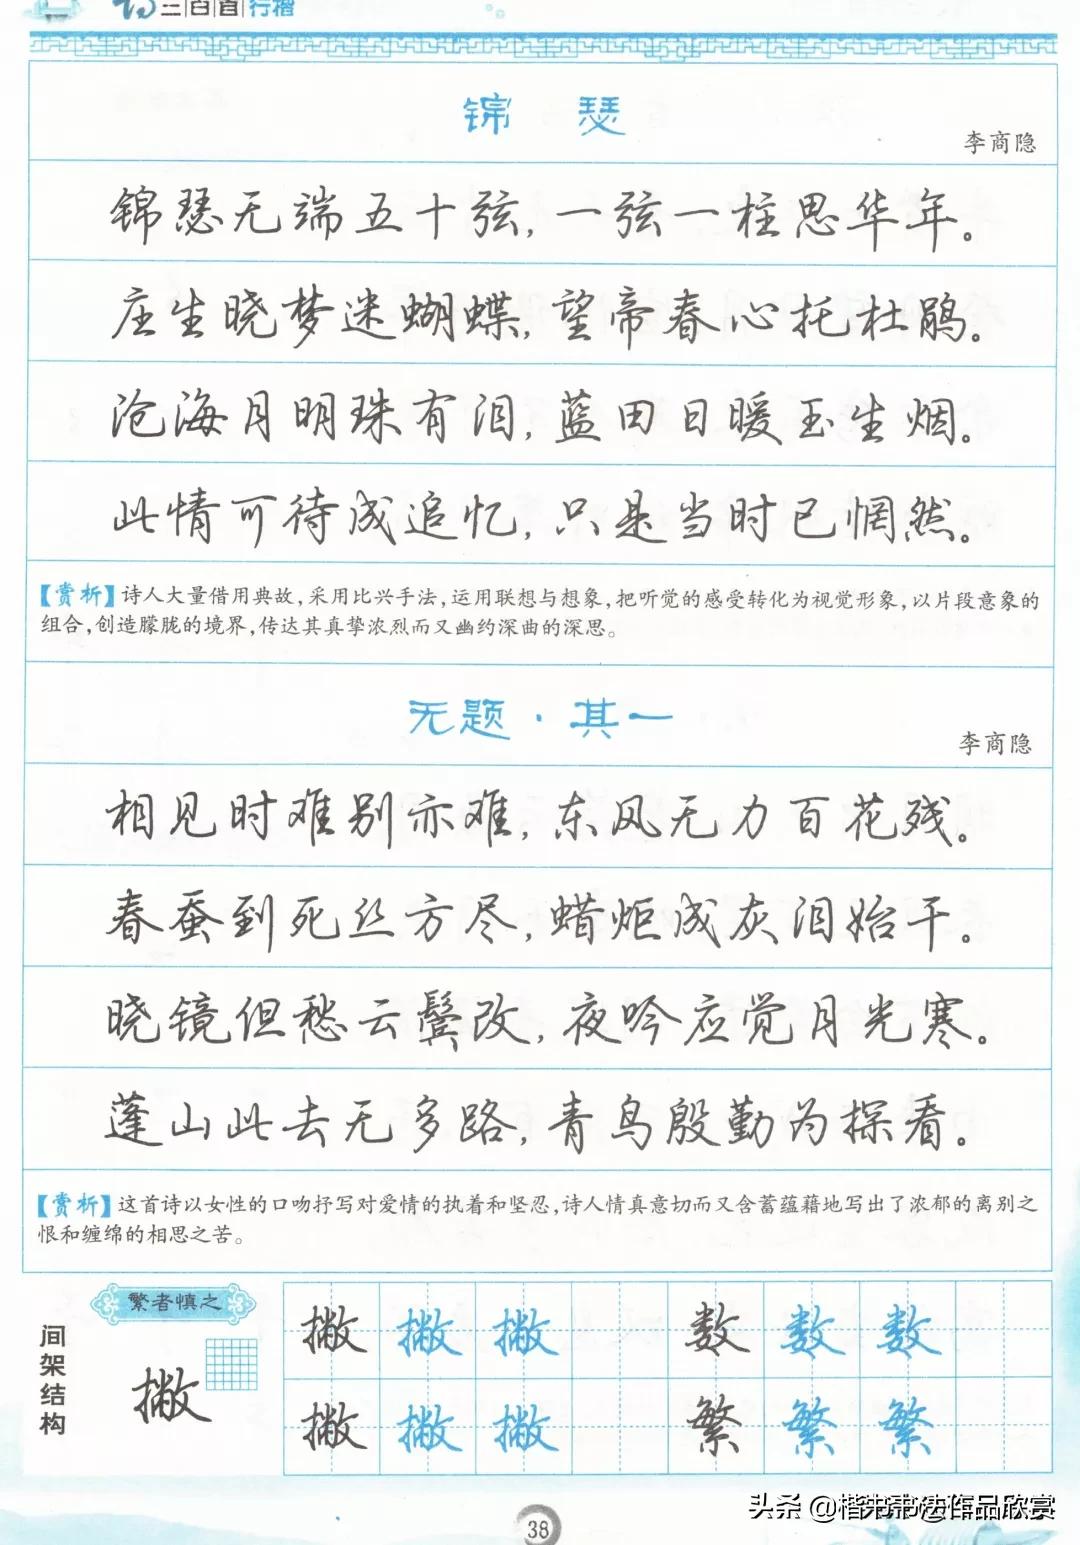 诗三百首行楷
锦 瑟
李商隐
锦瑟无端五十弦,一弦一柱思华年。
庄生晓梦迷蝴蝶,望帝春心托杜鹃。
沧海月明珠有泪,蓝田日暖玉生烟。
此情可待成追忆,只是当时已惘然。
【赏析】诗人大量借用典故,采用比兴手法,运用联想与想象,把听觉的感受转化为视觉形象,以片段意象的
组合,创造朦胧的境界,传达其真挚浓烈而又幽约深曲的深思。
无题·其一
李商隐
相见时难别亦难,东风无力百花残。
春蚕到死丝方尽,蜡炬成灰泪始干。
晓镜但愁云鬓改,夜吟应觉月光寒。
蓬山此去无多路,青鸟殷勤为探看。
【赏析】这首诗以女性的口吻抒写对爱情的执着和坚忍,诗人情真意切而又含蓄蕴藉地写出了浓郁的离别之
恨和缠绵的相思之苦。
间架结构
繁者慎之
撇
撇 撇 撇 数 数 数
撇 撇 撇 繁 繁 繁
38
头条 @楷书书法作品欣赏